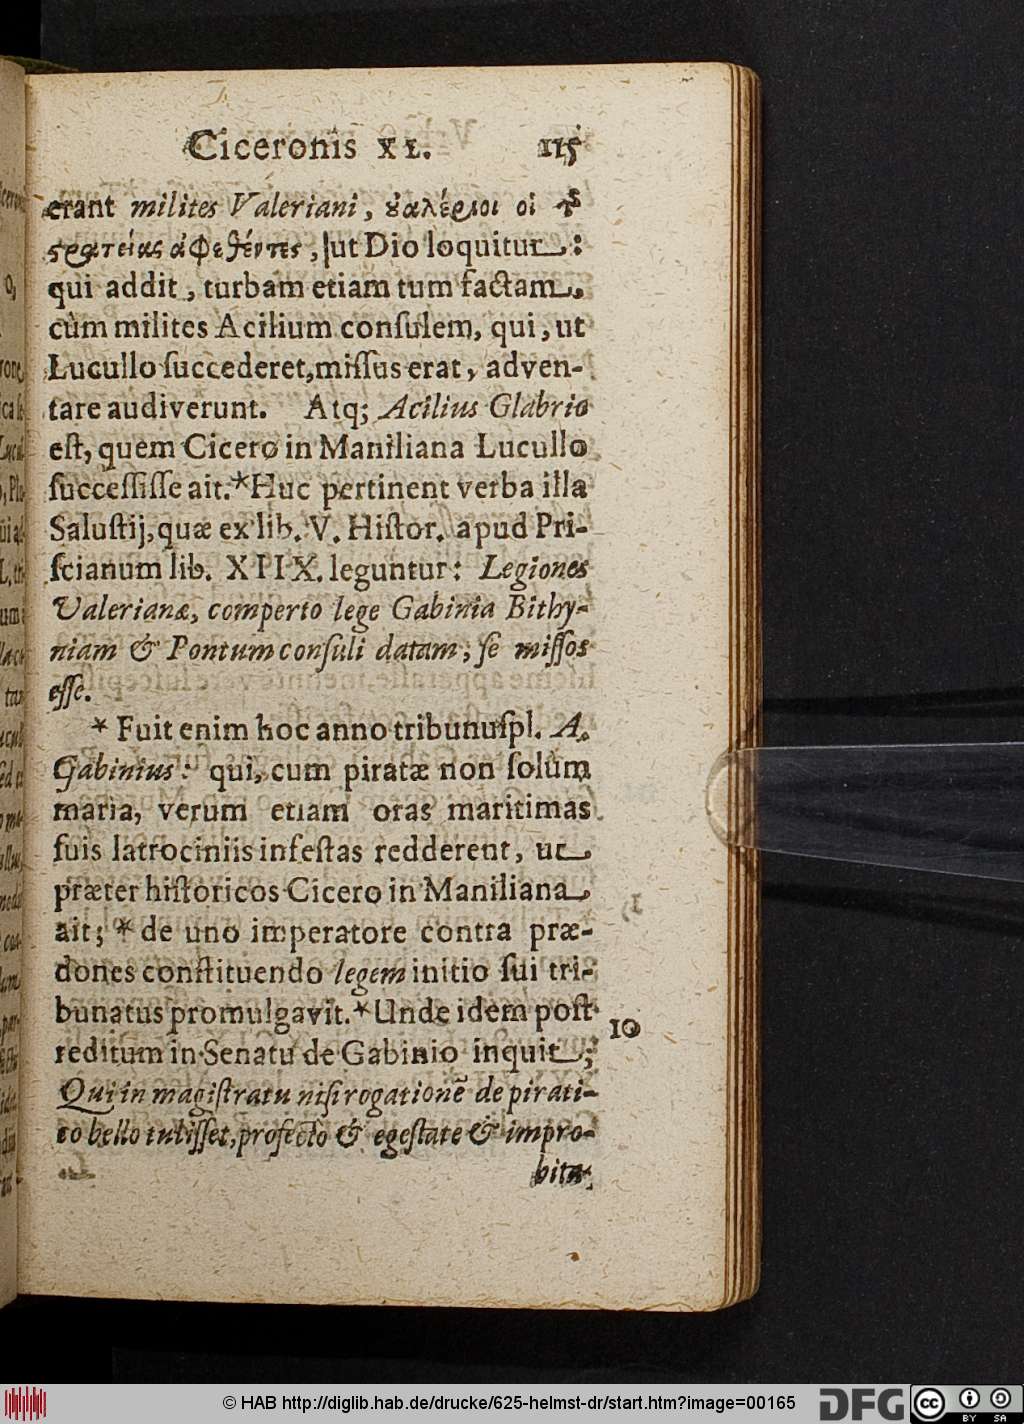 Ciceronis XL. 115
erant milites Valeriani, ȣαλέριοι οἱ τῆς
ϛρατείας ἀφεθέντες, ut Dio loquitur:
qui addit, turbam etiam tum factam,
cùm milites Acilium conſulem, qui, ut
Lucullo ſuccederet, miſſus erat, adven-
tare audiverunt. Atq; Acilius Glabrio
eſt, quem Cicero in Maniliana Lucullo
ſucceſſiſſe ait.* Huc pertinent verba illa
Saluſtij, quæ ex lib. V. Hiſtor. apud Pri-
ſcianum lib. XPIX. leguntur: Legiones
Valerianæ, comperto lege Gabinia Bithy-
niam & Pontum conſuli datam, ſe miſſos
eſſe.
* Fuit enim hoc anno tribunuſpl. A.
Gabinius: qui, cum piratæ non ſolùm
maria, verum etiam oras maritimas
ſuis latrociniis infeſtas redderent, ut
præter hiſtoricos Cicero in Maniliana
ait; * de uno imperatore contra præ-
dones conſtituendo legem initio ſui tri-
bunatus promulgavit.* Unde idem poſt
10
reditum in Senatu de Gabinio inquit;
Qui in magiſtratu niſi rogationē de pirati-
co bello tuliſſet, profecto & egeſtate & impro-
bita-
© HAB http://diglib.hab.de/drucke/625-helmst-dr/start.htm?image=00165
DFG
cc
BY SA